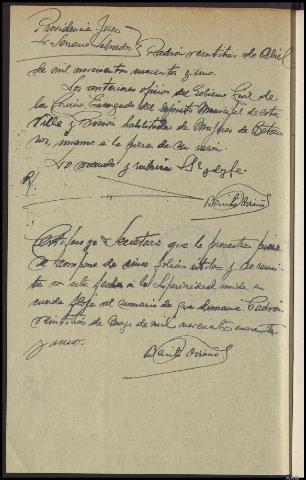 Providencia Juez
Sr Serrano Salvador Padrón veintitrés de Abril
de mil novecientos cuarenta y uno.
Los anteriores oficios del Gobierno Civil de
la Coruña, Encargado del depósito Municipal de esta
Villa y Prisión habilitada de Mujeres de Betan
zos, únanse a la pieza de su razón.
Lo mandó y rubrica SSª doy fe.
R/.
Certifico yo Secretario que la presente pieza
se compone de cinco folios útiles y se remi
te en esta fecha a la Superioridad unida en
cuerda floja al sumario de que dimana. Padrón
veintitrés de Mayo de mil novecientos cuarenta
y uno.